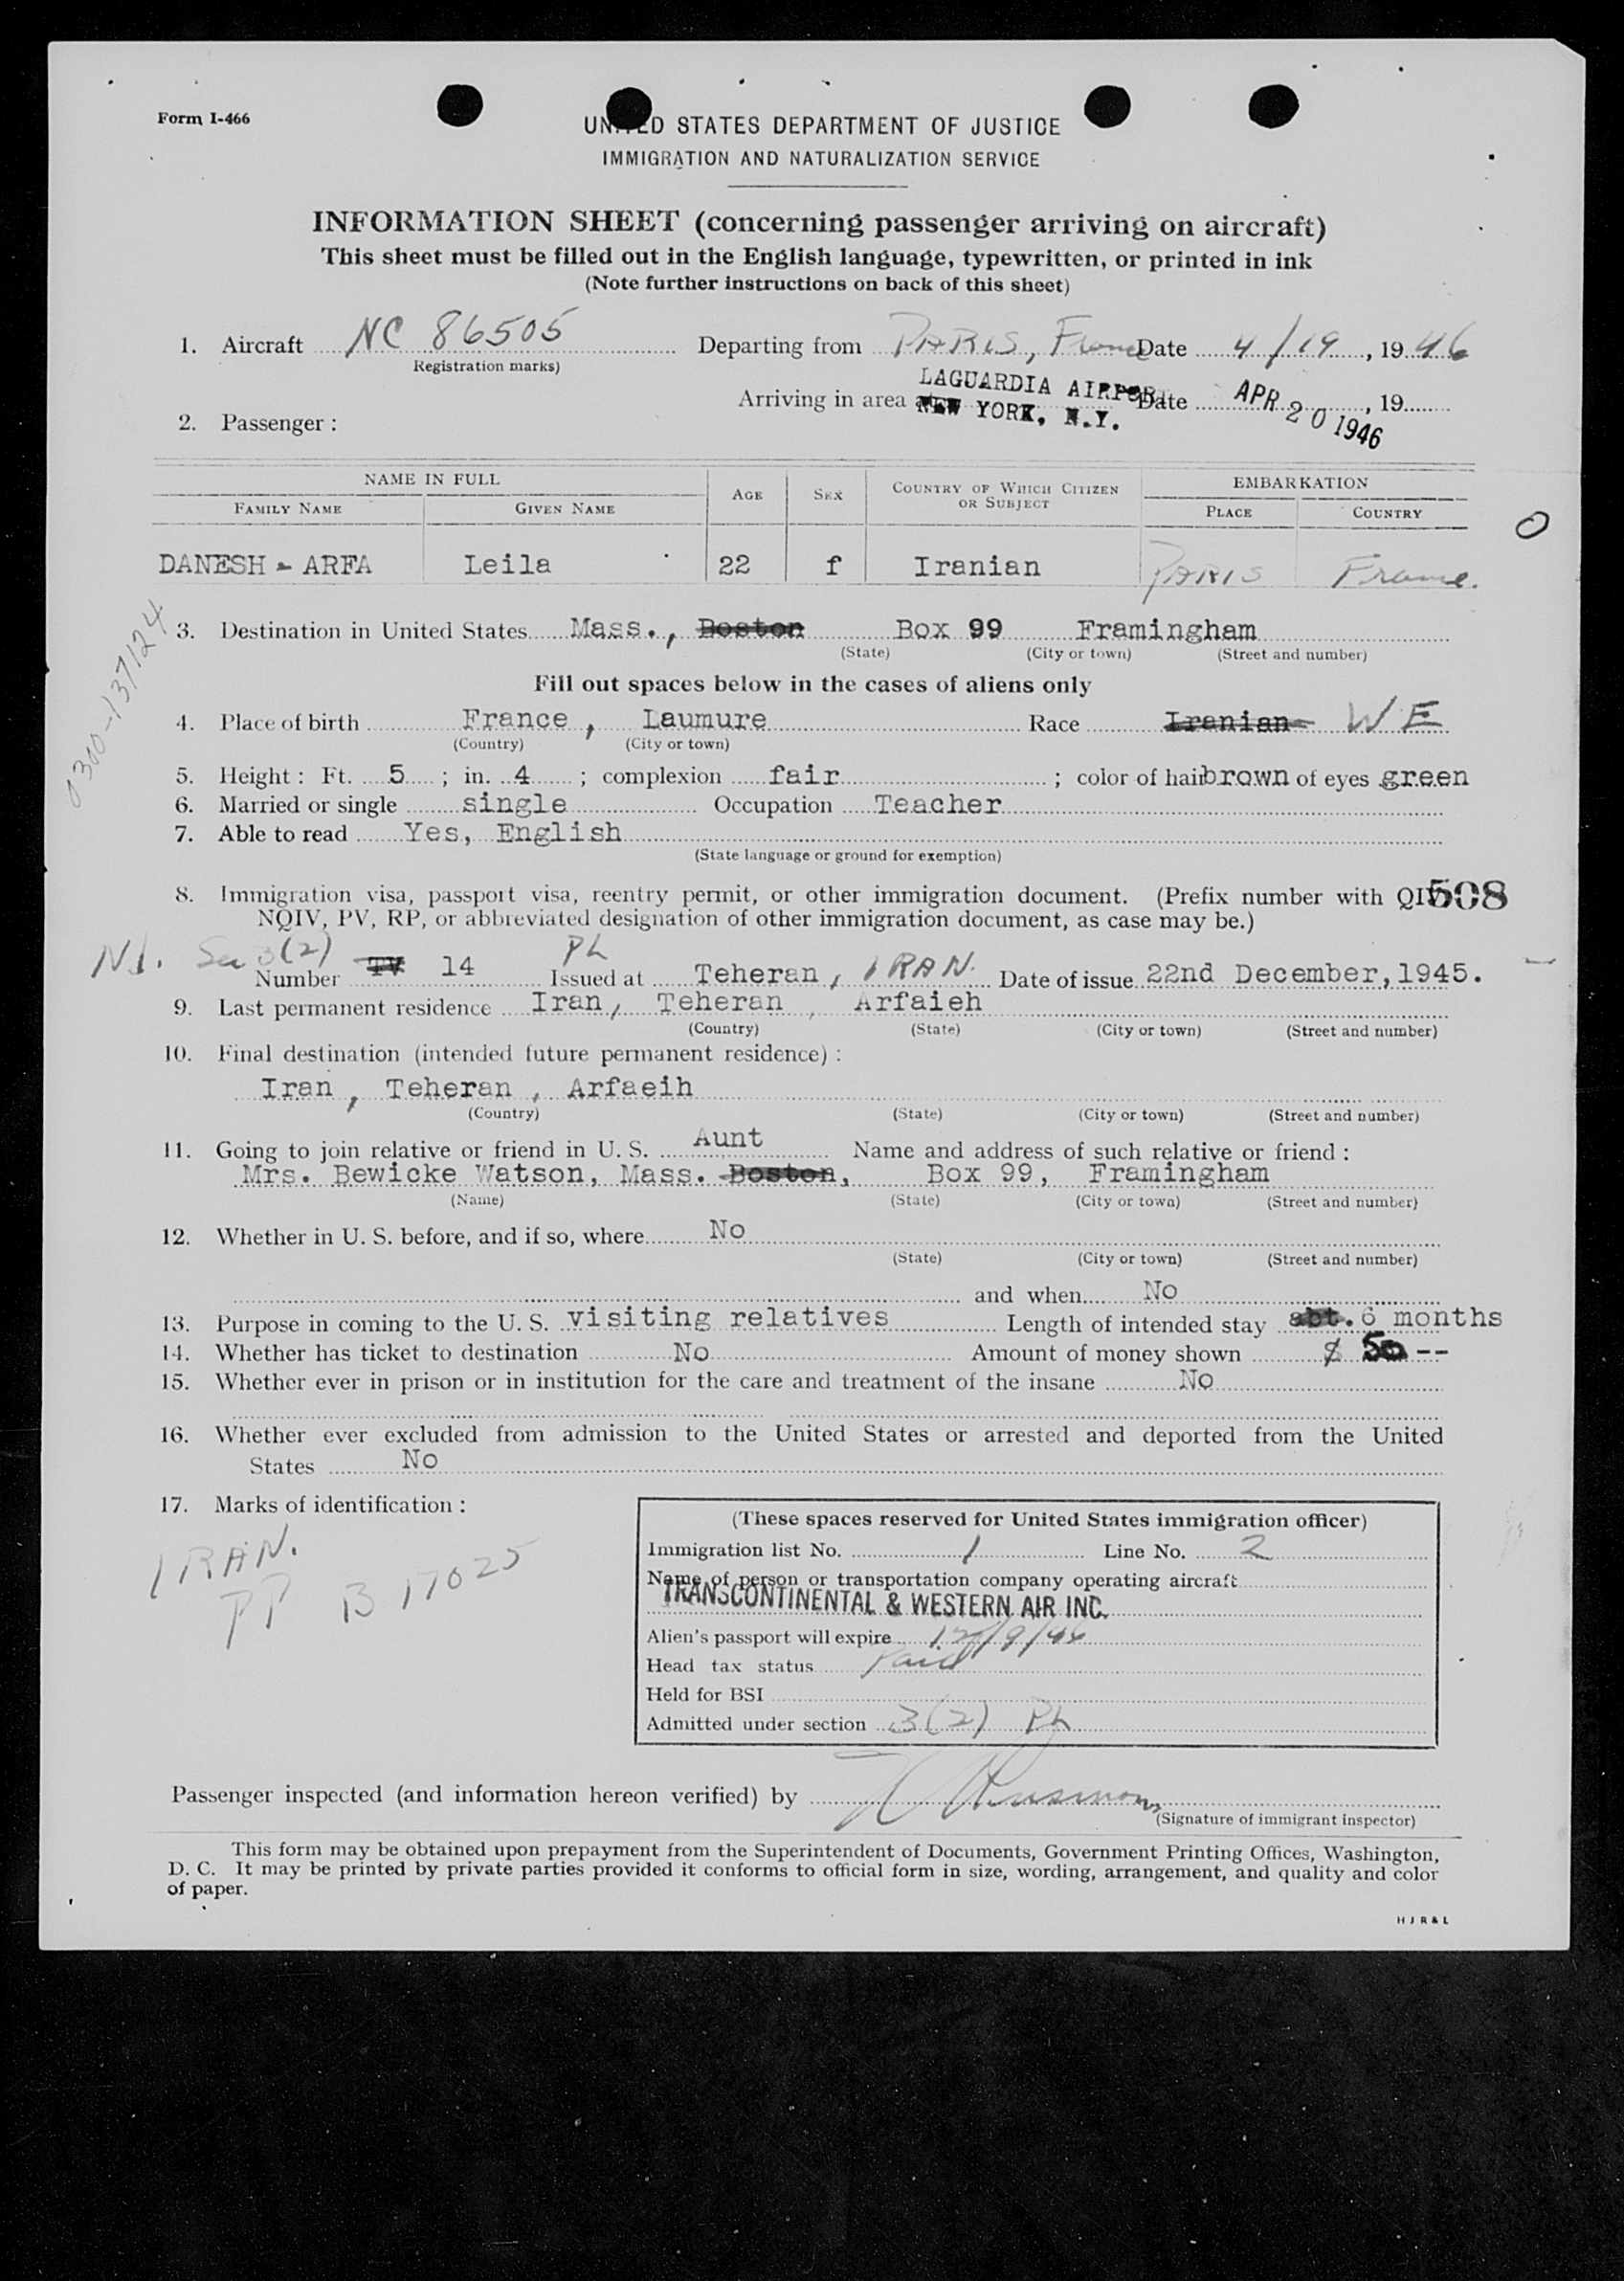 Form I-466
UNITED STATES DEPARTMENT OF JUSTICE
IMMIGRATION AND NATURALIZATION SERVICE
INFORMATION SHEET (concerning passenger arriving on aircraft)
This sheet must be filled out in the English language, typewritten, or printed in ink
(Note further instructions on back of this sheet)
1. Aircraft NC 86505 Departing from PARIS, France Date 4/19, 1946
(Registration marks)
Arriving in area at LAGUARDIA AIRPORT NEW YORK, N.Y. Date APR 20 1946, 19
2. Passenger:
NAME IN FULL
FAMILY NAME GIVEN NAME AGE SEX COUNTRY OF WHICH CITIZEN OR SUBJECT EMBARKATION PLACE COUNTRY
O
DANESH - ARFA Leila 22 f Iranian PARIS France.
0300-137124
3. Destination in United States Mass., Boston Box 99 Framingham
(State) (City or town) (Street and number)
Fill out spaces below in the cases of aliens only
4. Place of birth France, Laumure Race Iranian W E
(Country) (City or town)
5. Height: Ft. 5; in. 4; complexion fair; color of hair brown of eyes green
6. Married or single single Occupation Teacher
7. Able to read Yes, English
(State language or ground for exemption)
8. Immigration visa, passport visa, reentry permit, or other immigration document. (Prefix number with QIV 508
NQIV, PV, RP, or abbreviated designation of other immigration document, as case may be.)
3(2) PL
Number TV 14 Issued at Teheran, IRAN. Date of issue 22nd December, 1945.
9. Last permanent residence Iran, Teheran, Arfaieh
(Country) (State) (City or town) (Street and number)
10. Final destination (intended future permanent residence):
Iran, Teheran, Arfaeih
(Country) (State) (City or town) (Street and number)
11. Going to join relative or friend in U. S. Aunt Name and address of such relative or friend:
Mrs. Bewicke Watson, Mass. Boston, Box 99, Framingham
(Name) (State) (City or town) (Street and number)
12. Whether in U. S. before, and if so, where No
(State) (City or town) (Street and number)
and when No
13. Purpose in coming to the U. S. visiting relatives Length of intended stay abt. 6 months
14. Whether has ticket to destination No Amount of money shown $ 50 --
15. Whether ever in prison or in institution for the care and treatment of the insane No
16. Whether ever excluded from admission to the United States or arrested and deported from the United
States No
17. Marks of identification:
IRAN.
PP B 17025
(These spaces reserved for United States immigration officer)
Immigration list No. 1 Line No. 2
Name of person or transportation company operating aircraft
TRANSCONTINENTAL & WESTERN AIR INC.
Alien's passport will expire 12/9/46
Head tax status Paid
Held for BSI
Admitted under section 3(2) PL
Passenger inspected (and information hereon verified) by
(Signature of immigrant inspector)
This form may be obtained upon prepayment from the Superintendent of Documents, Government Printing Offices, Washington,
D. C. It may be printed by private parties provided it conforms to official form in size, wording, arrangement, and quality and color
of paper.
H J R & L